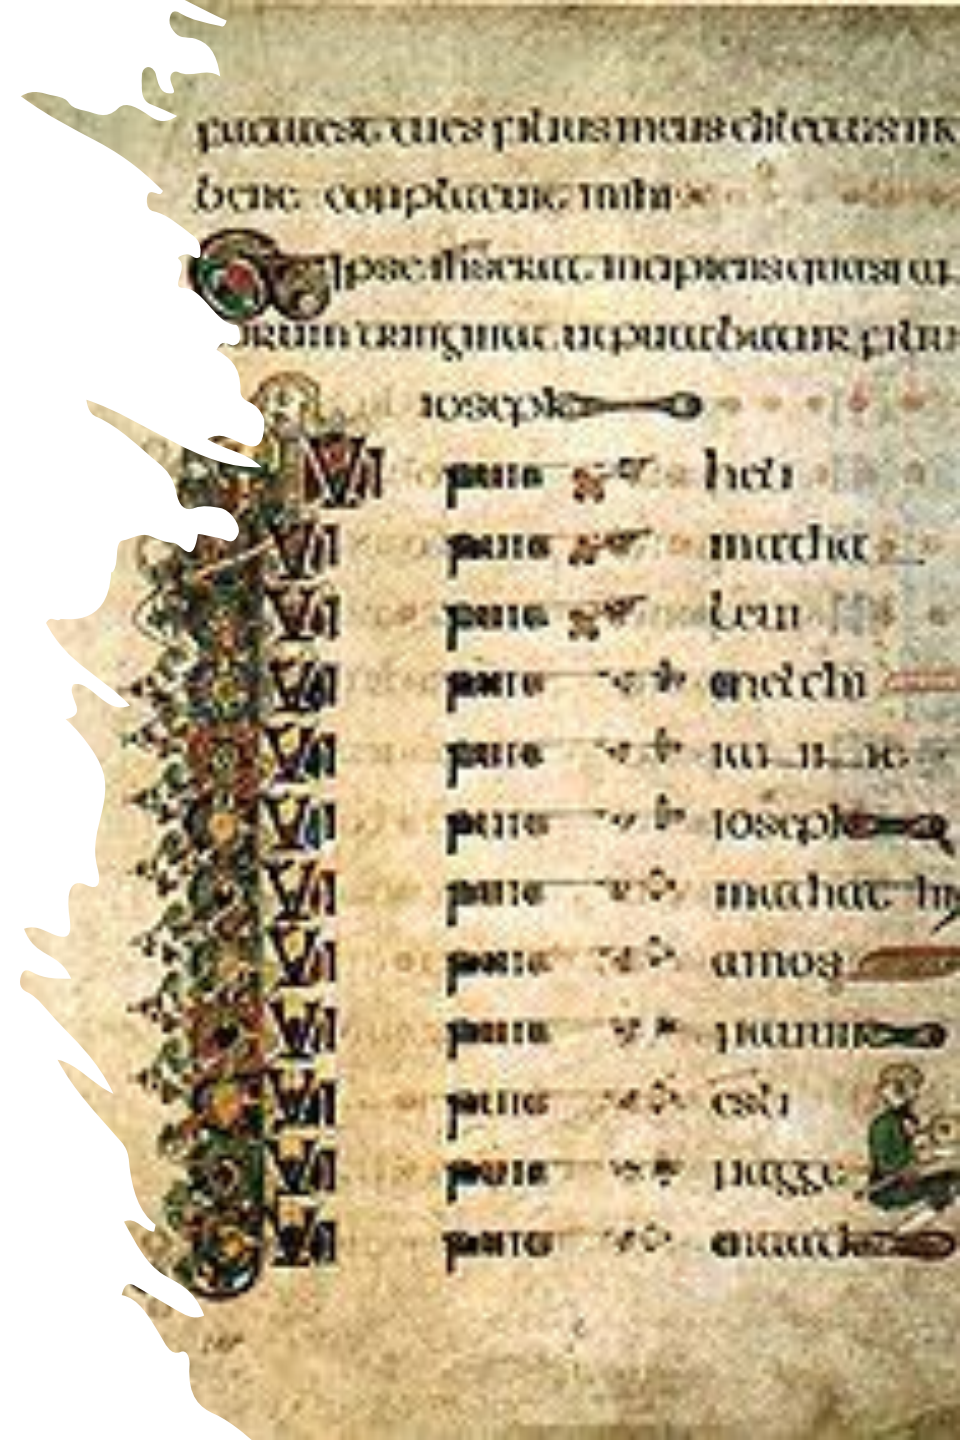 facta est tu es filius meus dilectus in
bene conplacuit mihi
ipse ihs erat incipiens quasi an
orum triginta ut putabatur filius
ioseph
QUI fuit heli
QUI fuit matha
QUI fuit leui
QUI fuit melchi
QUI fuit
QUI fuit ioseph
QUI fuit mathathi
QUI fuit amos
QUI fuit nauum
QUI fuit esli
QUI fuit nagge
QUI fuit maath